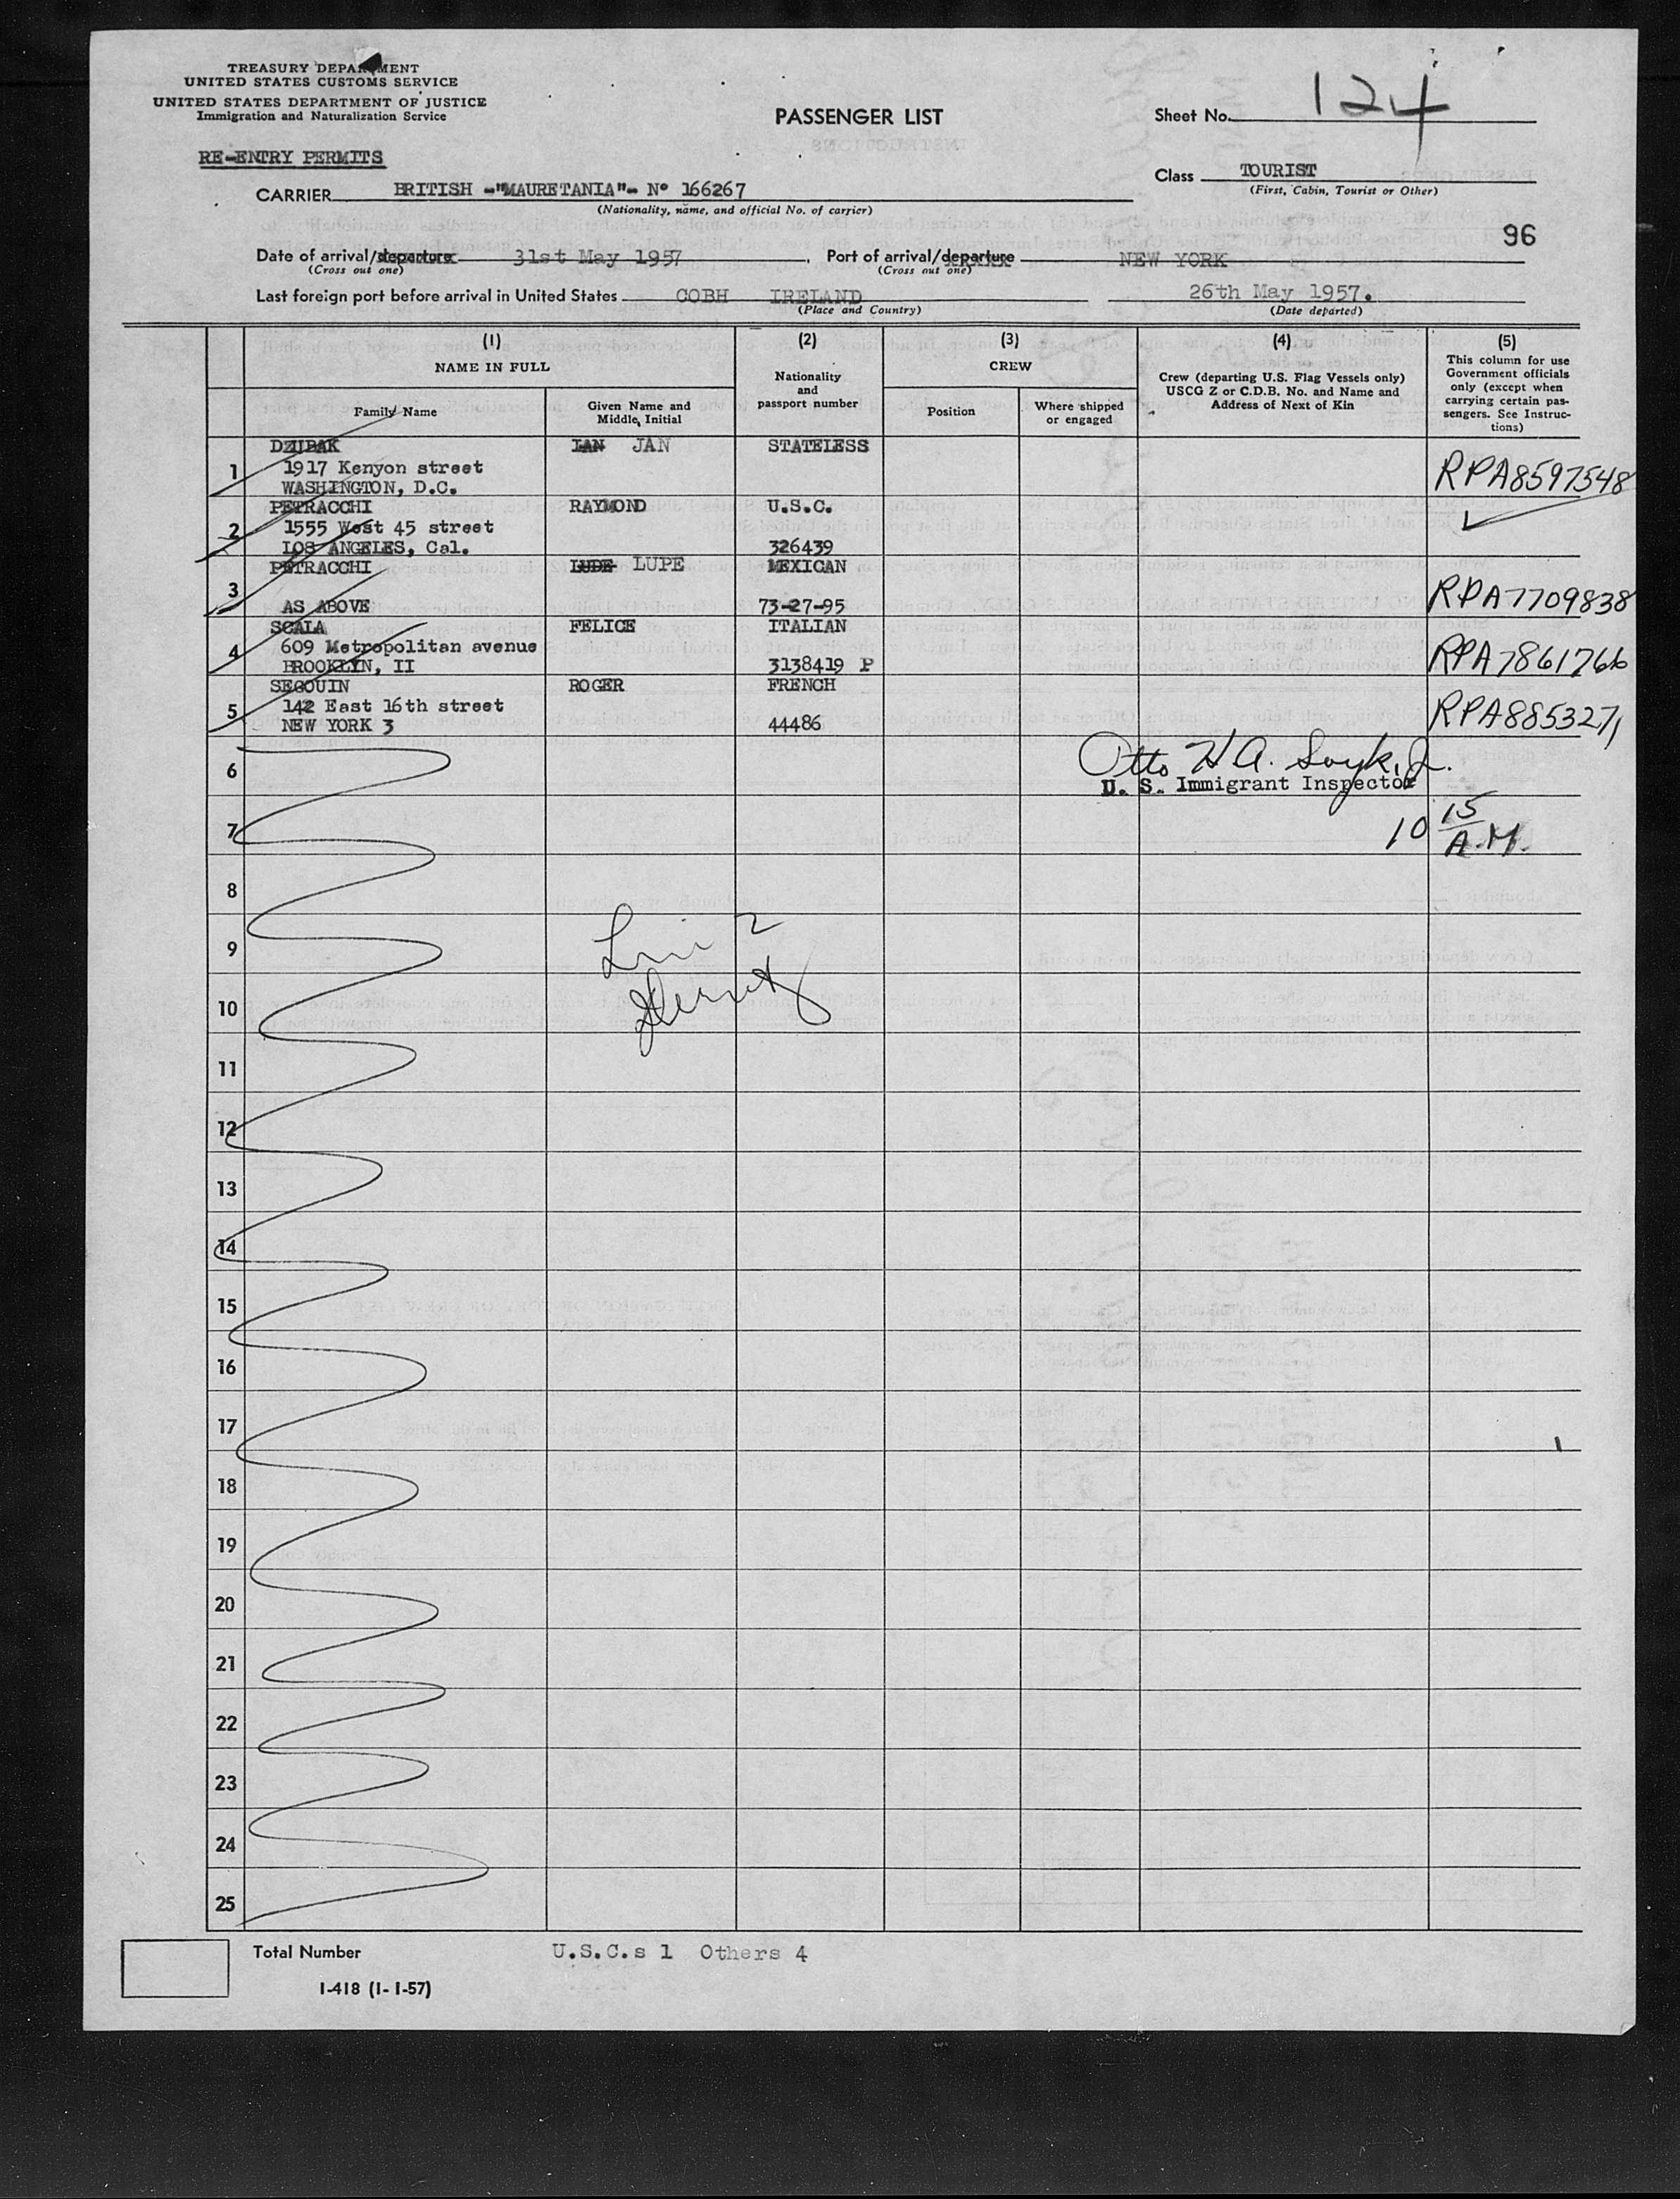 TREASURY DEPARTMENT
UNITED STATES CUSTOMS SERVICE
UNITED STATES DEPARTMENT OF JUSTICE
Immigration and Naturalization Service
PASSENGER LIST
Sheet No. 124
RE-ENTRY PERMITS
CARRIER BRITISH -"MAURETANIA"- Nº 166267
(Nationality, name, and official No. of carrier)
Class TOURIST
(First, Cabin, Tourist or Other)
96
Date of arrival/departure 31st May 1957. Port of arrival/departure NEW YORK
(Cross out one) (Cross out one)
Last foreign port before arrival in United States COBH IRELAND 26th May 1957.
(Place and Country) (Date departed)
(1) (2) (3) (4) (5)
NAME IN FULL
Nationality
and
passport number
CREW
Crew (departing U.S. Flag Vessels only)
USCG Z or C.D.B. No. and Name and
Address of Next of Kin
This column for use
Government officials
only (except when
carrying certain pas-
sengers. See Instruc-
tions)
Family Name
Given Name and
Middle Initial
Position
Where shipped
or engaged
DZIUBAK IAN JAN STATELESS
1 1917 Kenyon street RPA8597548
WASHINGTON, D.C.
PETRACCHI RAYMOND U.S.C.
2 1555 West 45 street
LOS ANGELES, Cal. 326439
PETRACCHI LUDE LUPE MEXICAN
3 RPA7709838
AS ABOVE 73-27-95
SCALA FELICE ITALIAN
4 609 Metropolitan avenue RPA7861766
BROOKLYN, II 3138419 P
SEGOUIN ROGER FRENCH
5 142 East 16th street RPA8853271
NEW YORK 3 44486
6 Otto H A.
U. S. Immigrant Inspector
7 10 15
A.M.
8
9
10
11
12
13
14
15
16
17
18
19
20
21
22
23
24
25
Total Number U.S.C.s 1 Others 4
I-418 (1-1-57)